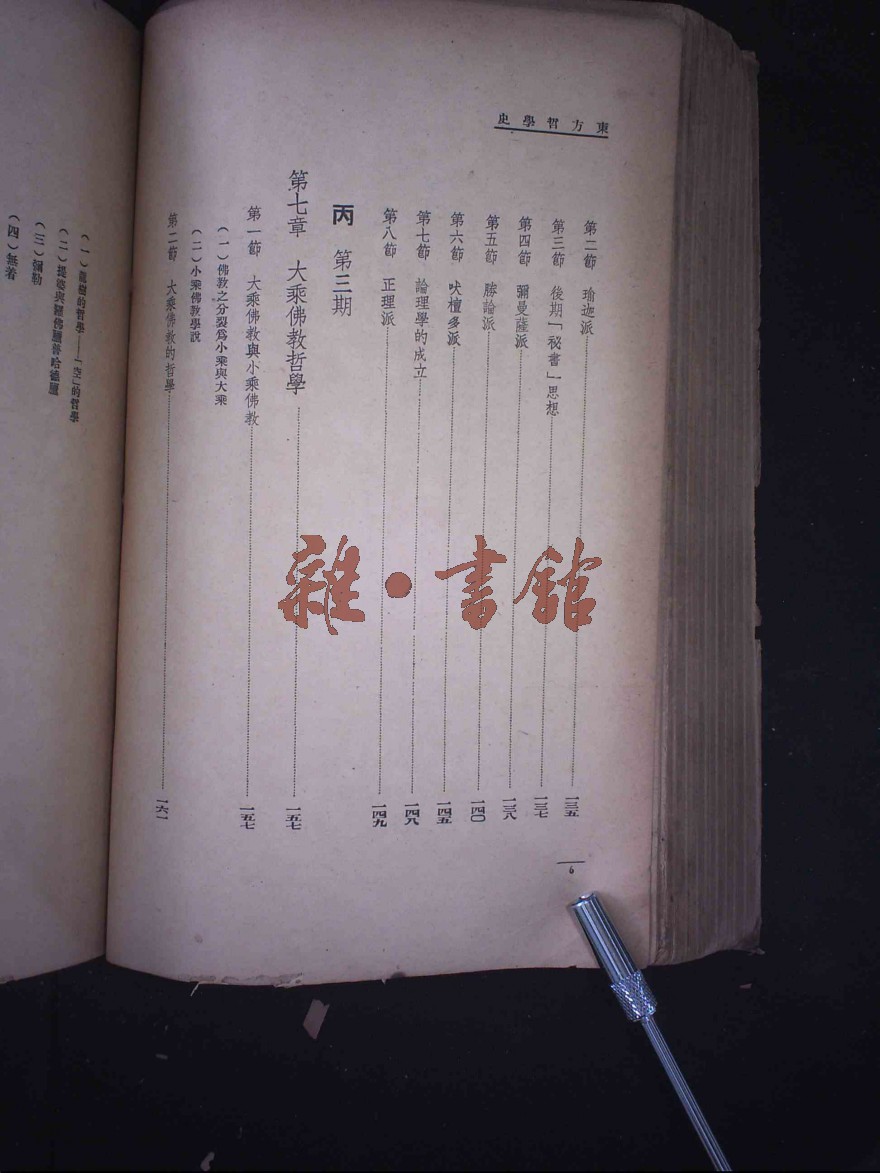 東方哲學史
第二節 瑜迦派 一三五
第三節 後期「秘書」思想 一三七
第四節 彌曼薩派 一三八
第五節 勝論派 一四〇
第六節 吠檀多派 一四五
第七節 論理學的成立 一四八
第八節 正理派 一四九
丙 第三期
第七章 大乘佛教哲學 一五七
第一節 大乘佛教與小乘佛教 一五七
（一）佛教之分裂爲小乘與大乘
（二）小乘佛教學說
第二節 大乘佛教的哲學 一六一
6
（一）龍樹的哲學——「空」的哲學
（二）提婆與羅佛
（三）彌勒
（四）無着
雜·書館